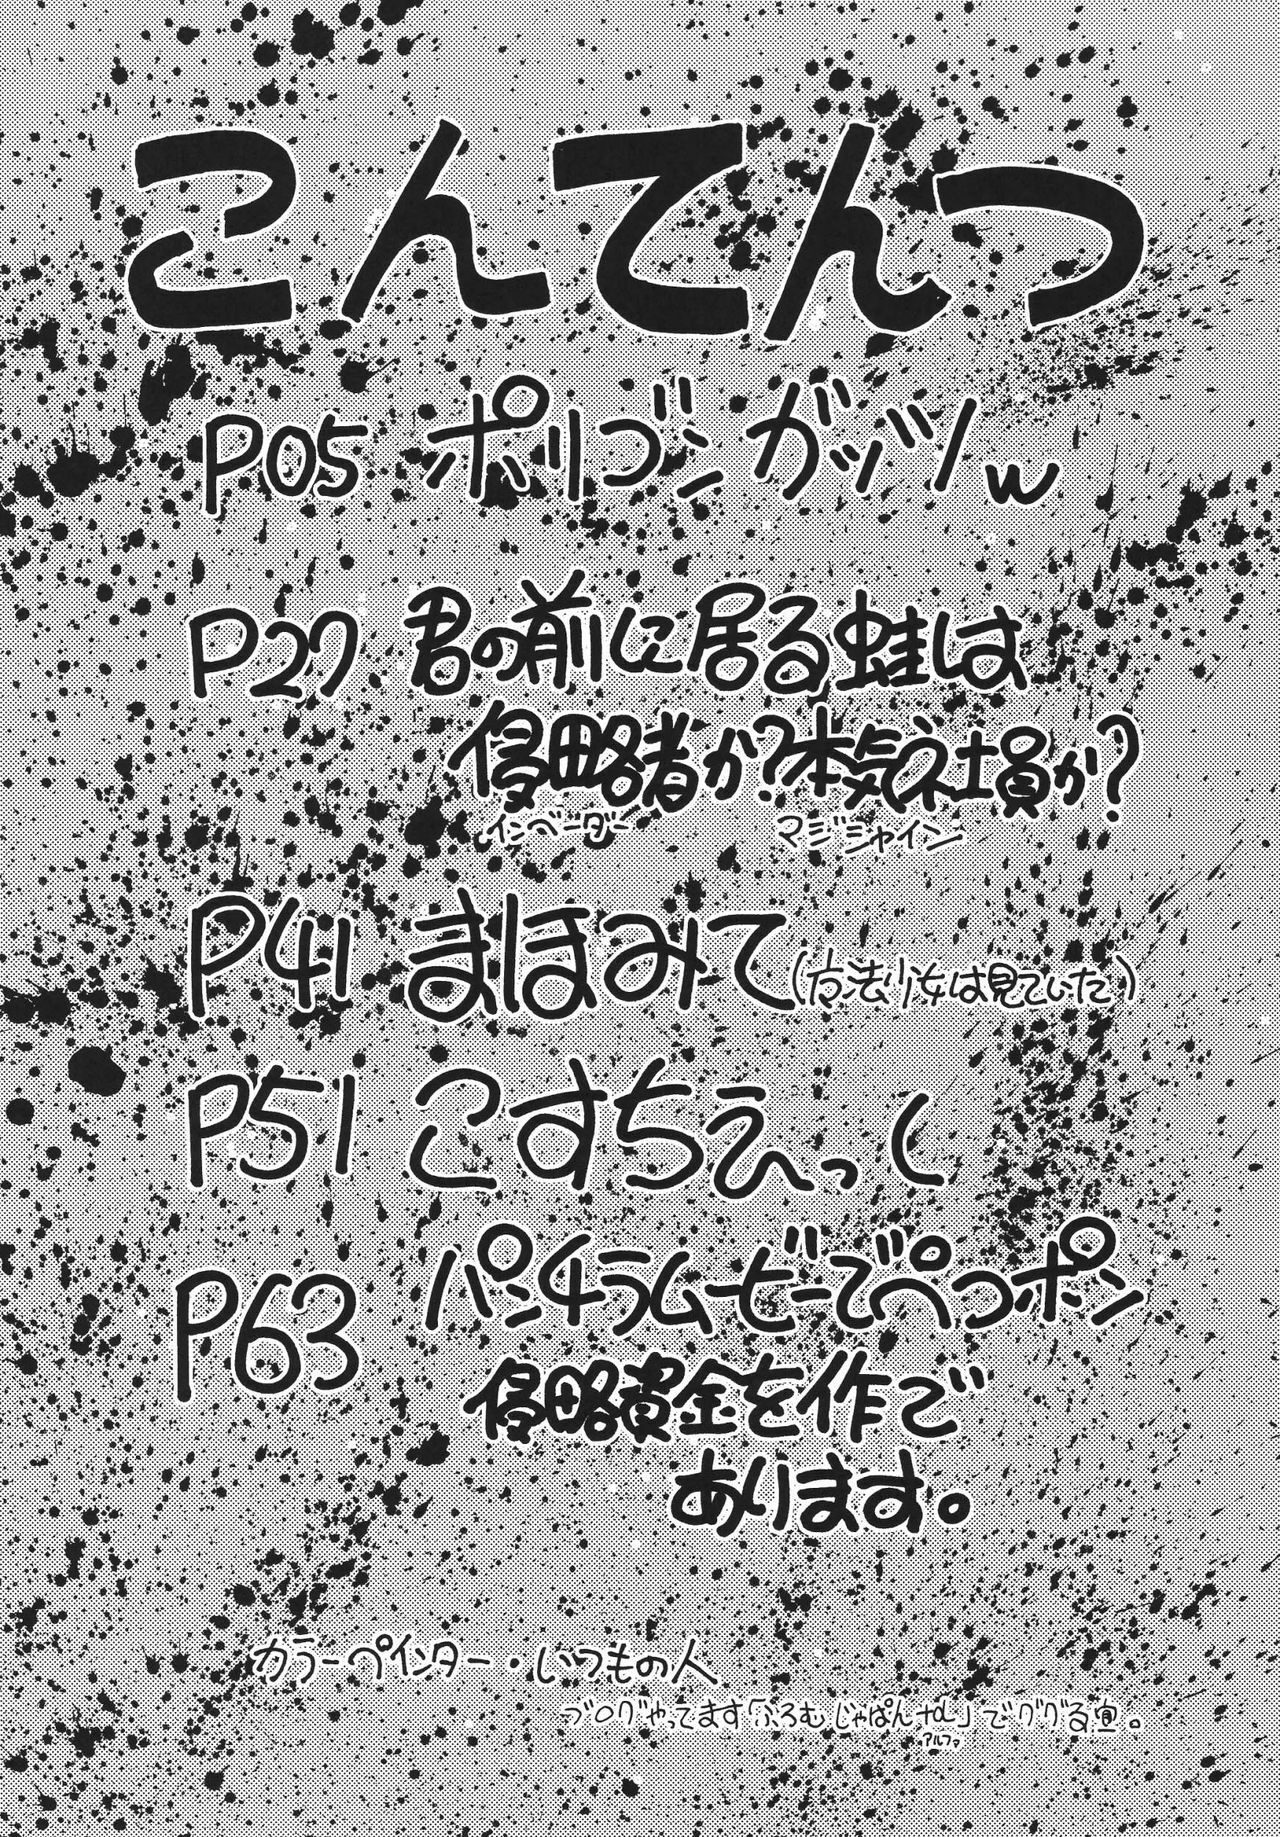 こんてんつ
P05 ポリゴンガッツw
P27 君の前に居る蛙は
侵略者か?本気ネ土員か?
インベーダー マジジャイン
P41 まほみて(方法少女は見ていた)
P51 こすちぇっく
P63 パンチラムービーでペコポン
侵略資金を作で
あります。
カラーペインター・いつもの人
ブログやってます「ふろむじゃぱんんα」でググる宜。
アルファ